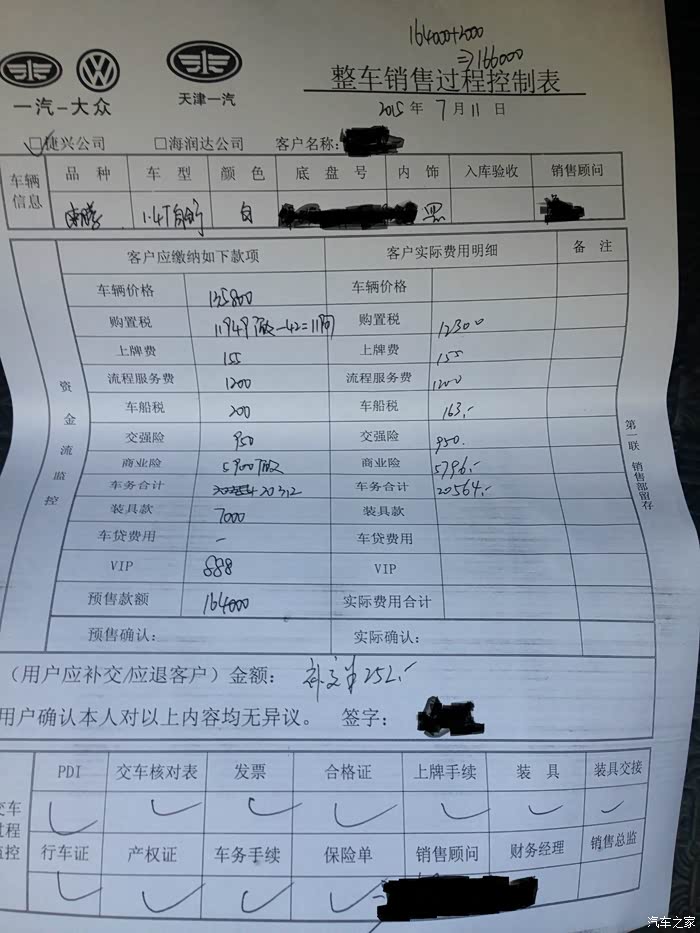 164000+2000
⇒166000
一汽-大众
天津一汽
整车销售过程控制表
2015年7月11日
□捷兴公司 □海润达公司 客户名称:
车辆信息 品种 车型 颜色 底盘号 内饰 入库验收 销售顾问
1.4T自 白 黑
客户应缴纳如下款项 客户实际费用明细 备注
资金流监控
第一联 销售部留存
车辆价格 135800 车辆价格
购置税 11949 -42=11907 购置税 12300
上牌费 155 上牌费 155
流程服务费 1200 流程服务费 1200
车船税 200 车船税 163.-
交强险 950 交强险 950.
商业险 5900 商业险 5796.-
车务合计 20312 车务合计 20564.-
装具款 7000 装具款
车贷费用 - 车贷费用
VIP 888 VIP
预售款额 164000 实际费用合计
预售确认: 实际确认:
(用户应补交/应退客户)金额: 补交 252.-
用户确认本人对以上内容均无异议。 签字:
交车过程监控
PDI 交车核对表 发票 合格证 上牌手续 装具 装具交接
行车证 产权证 车务手续 保险单 销售顾问 财务经理 销售总监
汽车之家